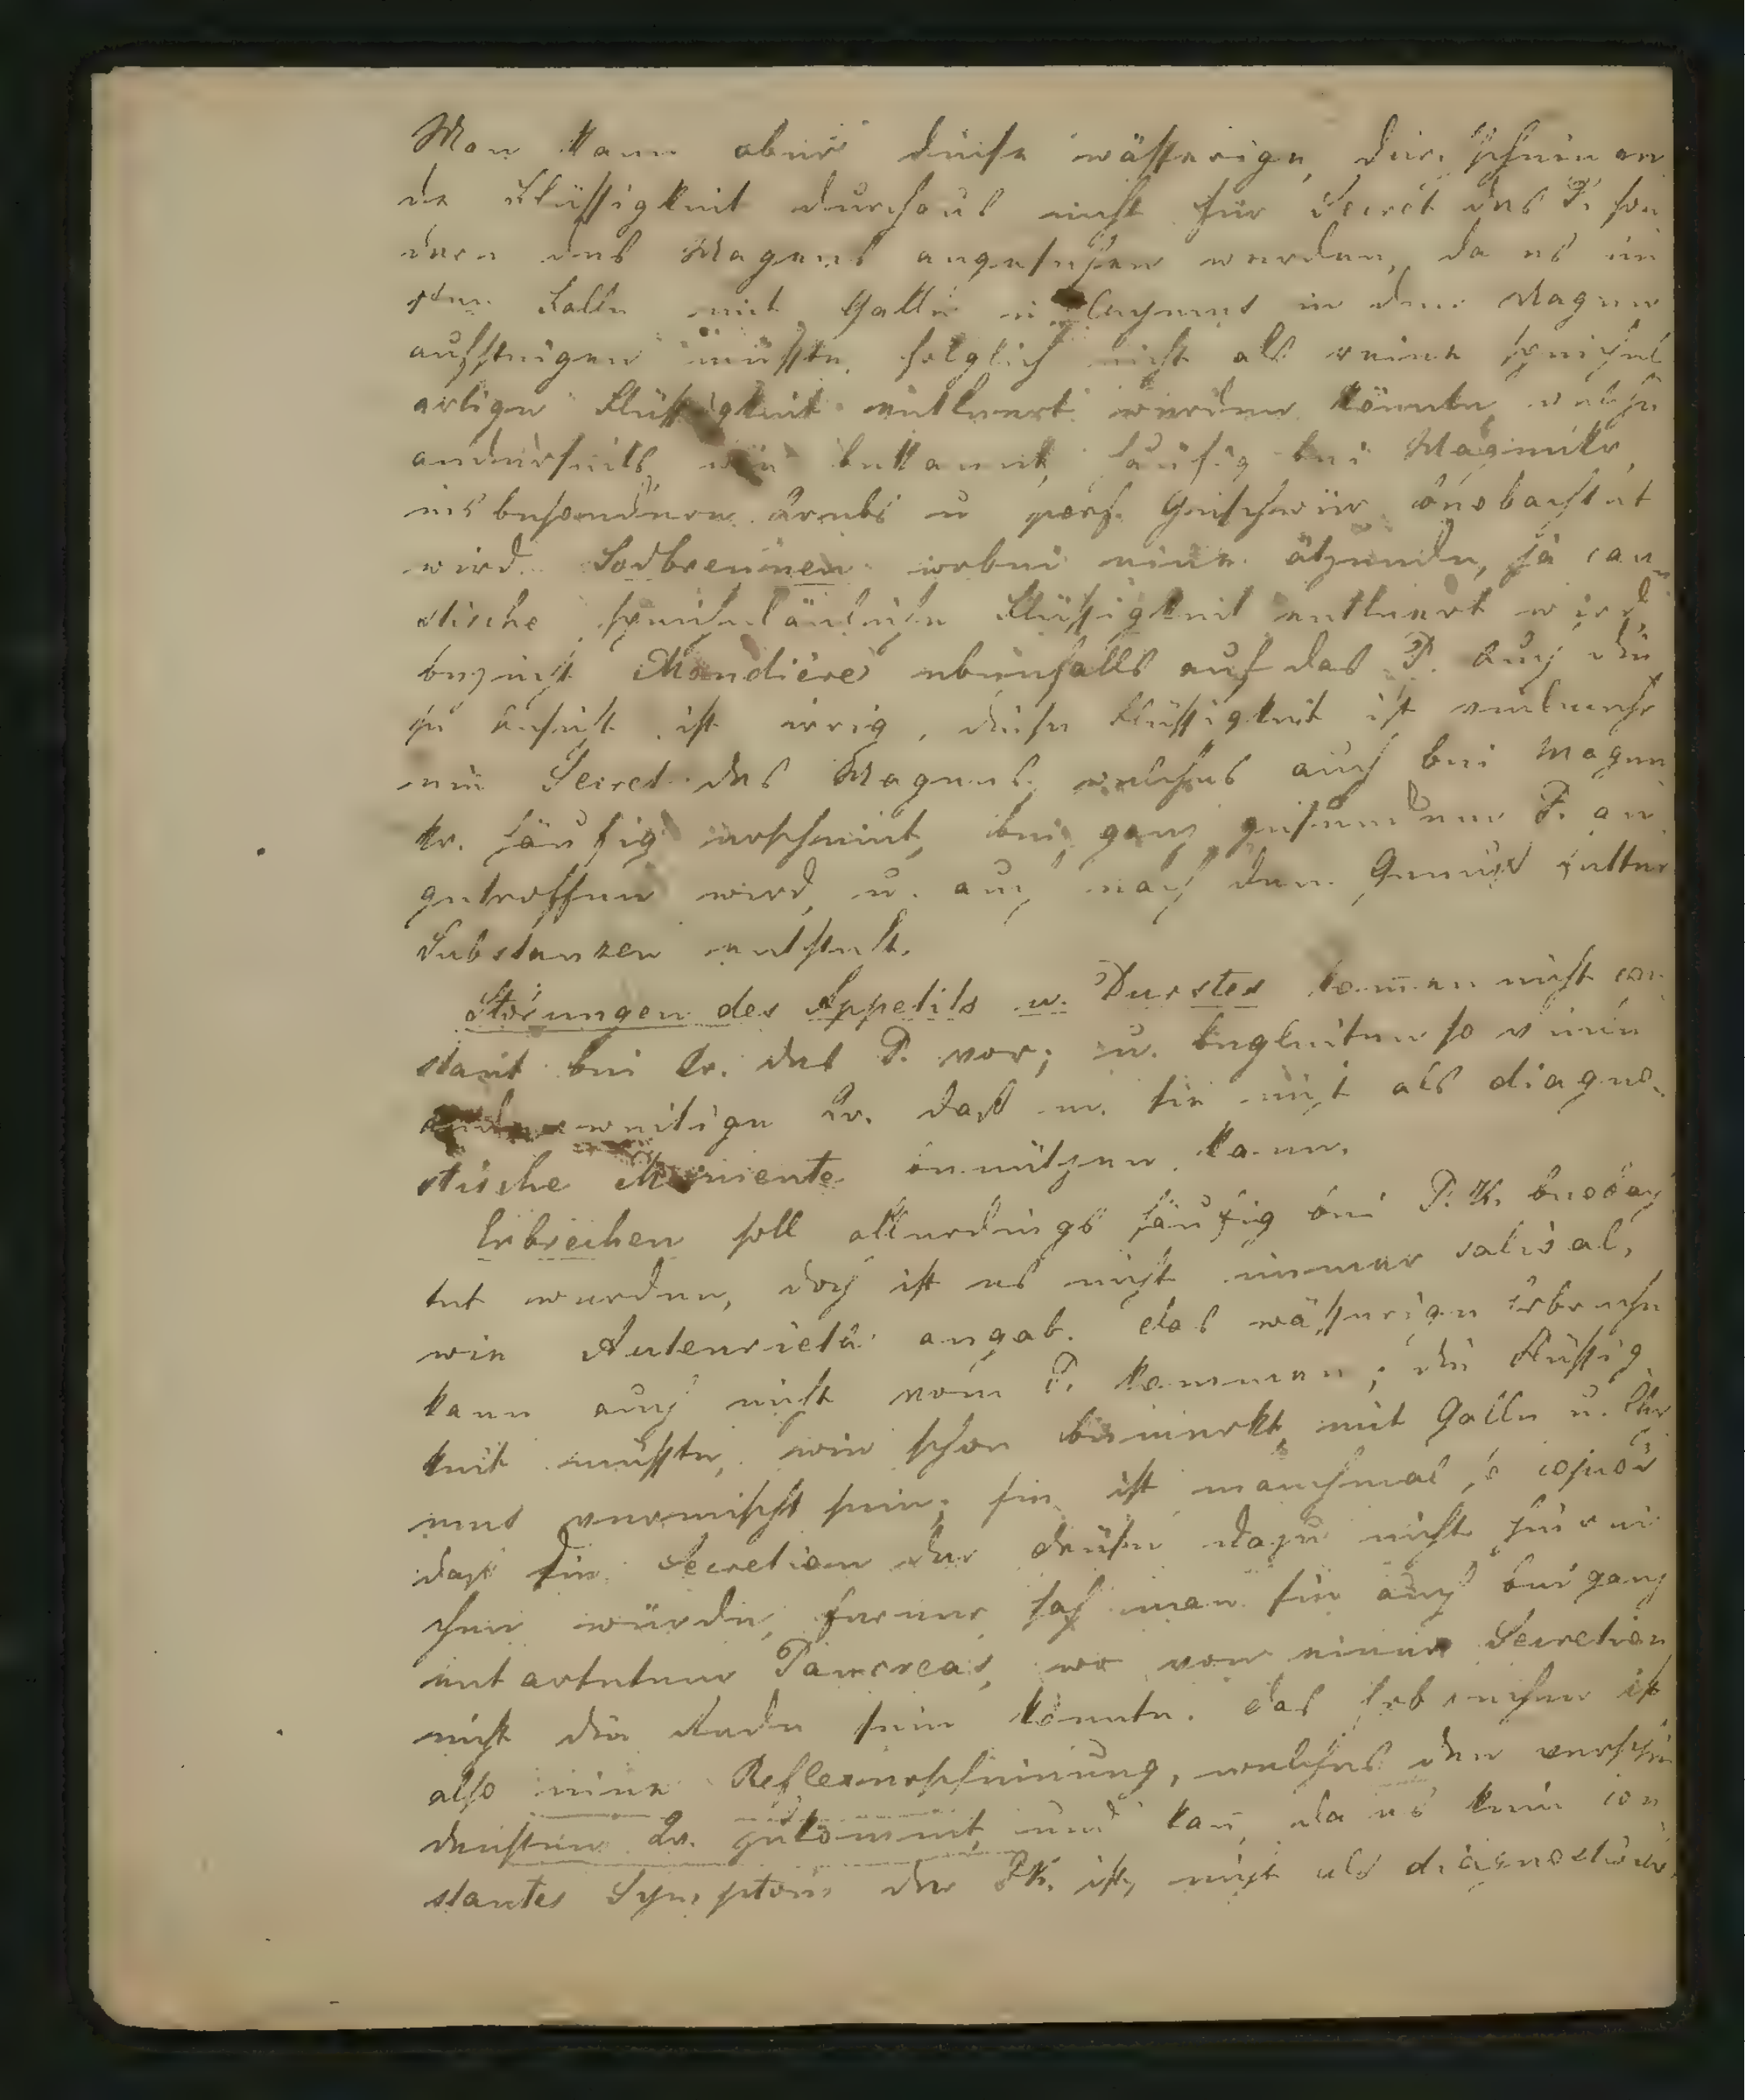 Man kann aber diese wässerige, durchscheinen
de Flüssigkeit durchaus nicht für Secret des P. son
dern des Magens angesehen werden, da es im
Falle mit Galle u. Chymus in den Magen
aufsteigen müßte, folglich nicht als reine speichel
artige Flüssigkeit entleert werden könnte, welche
anderseits, wie bekannt, häufig bei Magenkr.
insbesondere Krebs u perf. Geschwür beobachtet
wird. Sodbrennen wobei eine ätzende, ja cau
stische speichelähnliche Flüssigkeit entleert wird,
bezieht Mondière ebenfalls auf das P. Auch die
se Ansicht ist irrig, diese Flüssigkeit ist vielmehr
ein Secret des Magens, welches auch bei Magen
kr. häufig erscheint, bei ganz gesundem P. an
getroffen wird, u. auch nach dem Genuß fetter
Substanzen entsteht.
Störungen des Appetits u. Durstes kommen nicht con
stant bei Kr. des P. vor; u. begleiten so viele
anderweitige Kr. daß m. sie nicht als diagno
stische Momente benützen kann.
Erbrechen soll allerdings häufig bei P. K. beobach
tet werden, doch ist es nicht immer salival,
wie Autenrieth angab. das wässerige Erbrechen
kann auch nicht vom P. kommen; die Flüssig
keit müßte, wie schon bemerkt, mit Galle u. Chy
mus vermischt sein; sie ist manchmal so copiös
daß die Secretion der Drüse dazu nicht hinrei
chen würde, ferner sah man sie auch bei ganz
entartetem Pancreas, wo von einer Secretion
nicht die Rede sein konnte. das Erbrechen ist
also eine Reflexerscheinung, welches den verschie
densten Kr. zukommt, und kan, da es kein con
stantes Symptom der PK. ist, nicht als diagnostisch